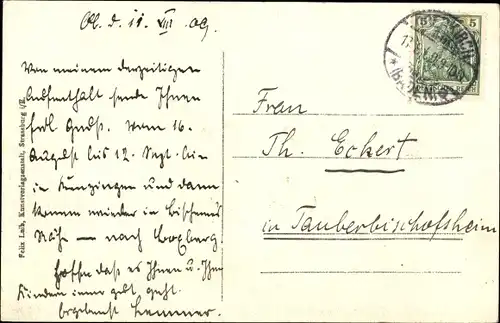 Ob. d. 11. VIII 09.
Von meinem derzeitigen
Aufenthalt sende Ihnen
frdl. Gruß. Vom 16.
August bis 12. Sept. bin
in und dann
komme wieder in Bischofsheims
Nähe – nach Boxberg.
Hoffe daß es Ihnen u. Ihren
Kindern immer gut geht.
Felix Luib, Kunstverlagsanstalt, Strassburg i/E.
5 5
(BADEN)
Frau
Th. Eckert
in Tauberbischofsheim